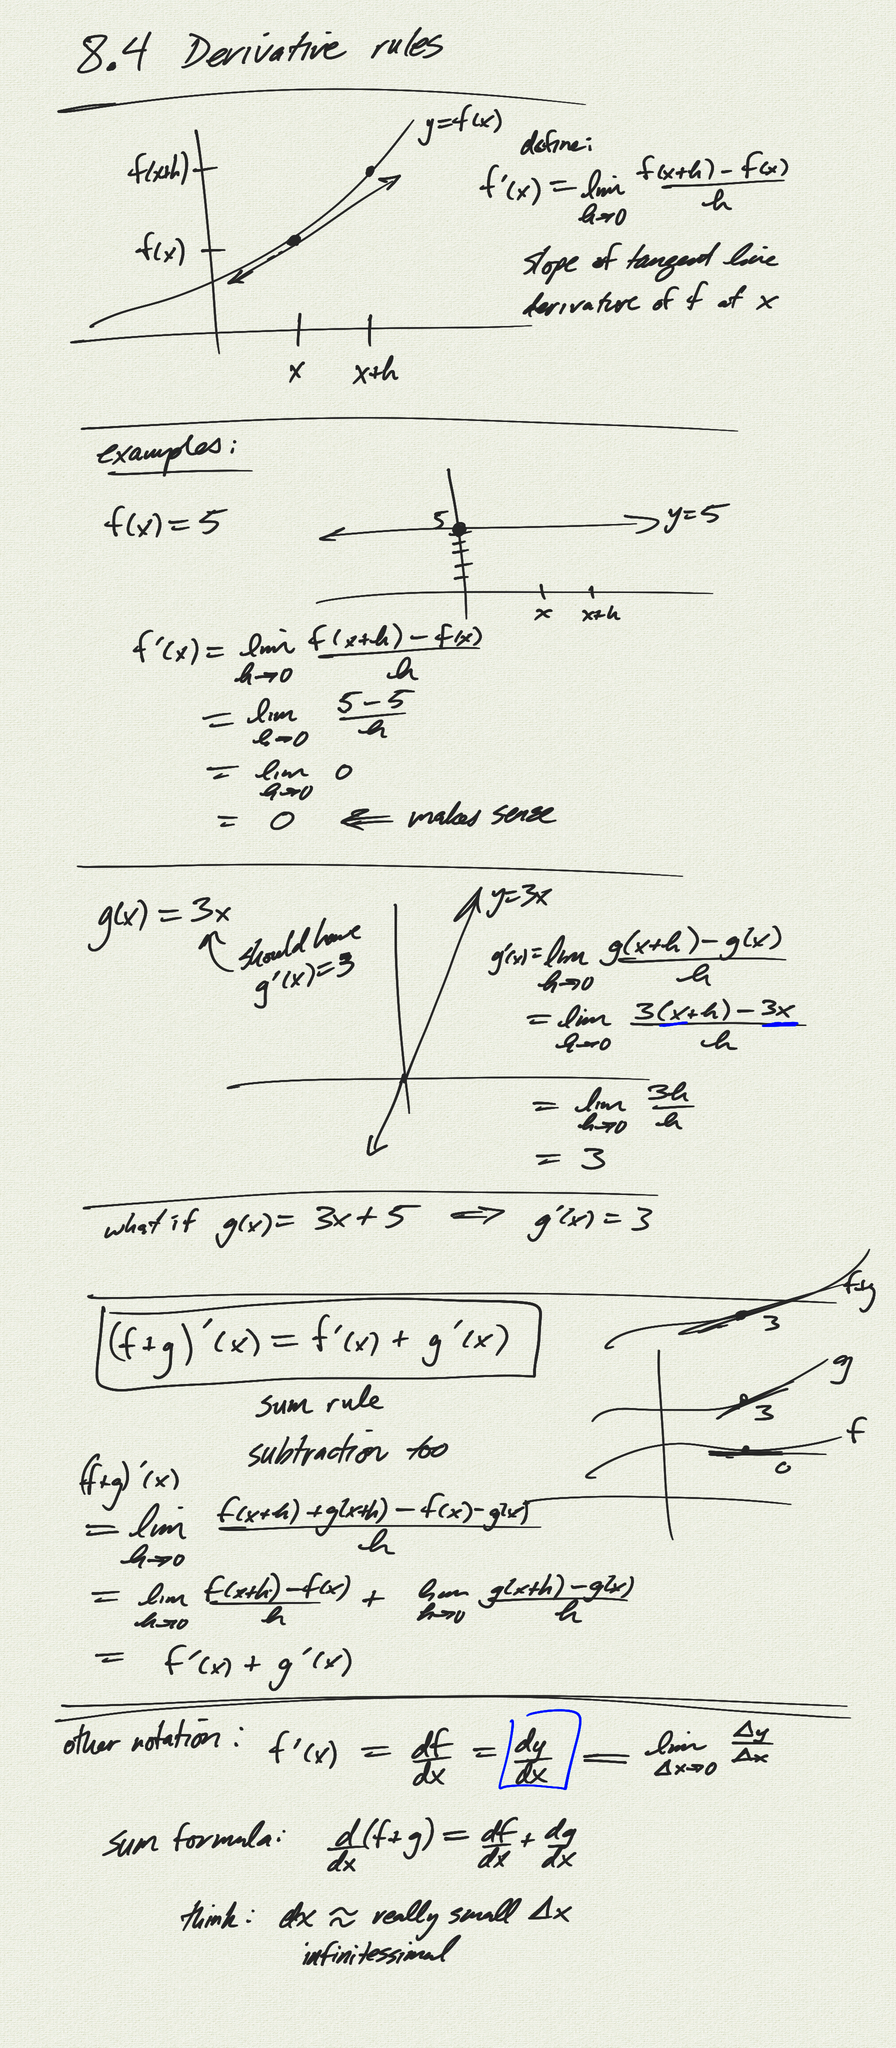 8.4 Derivative rules
y=f(x)
f(x+h)
f(x)
x x+h
define:
f'(x) = lim h→0 (f(x+h) - f(x))/h
slope of tangent line
derivative of f at x
examples:
f(x) = 5
5
y=5
x x+h
f'(x) = lim h→0 (f(x+h) - f(x))/h
= lim h→0 (5-5)/h
= lim h→0 0
= 0 ⇐ makes sense
g(x) = 3x
should have
g'(x)=3
y=3x
g'(x) = lim h→0 (g(x+h) - g(x))/h
= lim h→0 (3(x+h) - 3x)/h
= lim h→0 3h/h
= 3
what if g(x) = 3x + 5 ⇒ g'(x) = 3
(f+g)'(x) = f'(x) + g'(x)
sum rule
subtraction too
f+g
3
g
3
f
0
(f+g)'(x)
= lim h→0 (f(x+h) + g(x+h) - f(x) - g(x))/h
= lim h→0 (f(x+h) - f(x))/h + lim h→0 (g(x+h) - g(x))/h
= f'(x) + g'(x)
other notation: f'(x) = df/dx = dy/dx = lim Δx→0 Δy/Δx
sum formula: d/dx (f+g) = df/dx + dg/dx
think: dx ≈ really small Δx
infinitessimal